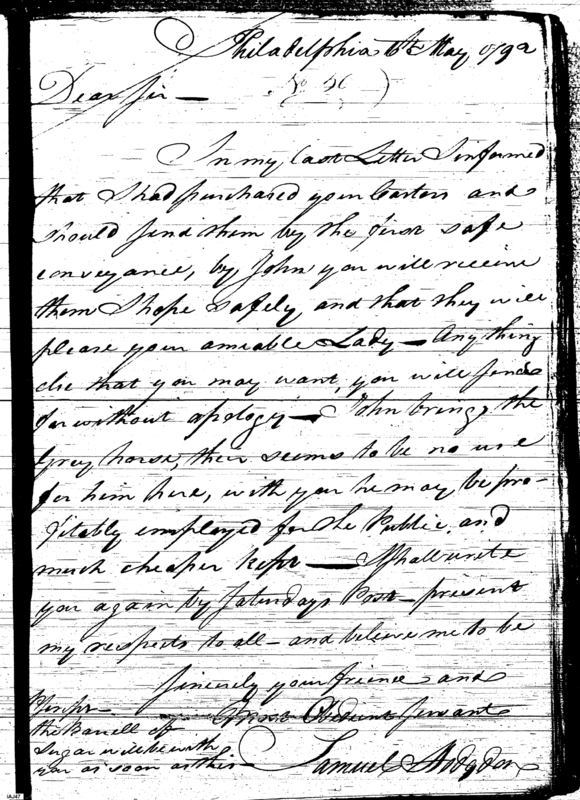 Philadelphia 6th May 1792
Dear Sir —
In my last Letter I informed
that I had purchased your Castors and
should send them by the first safe
conveyance, by John you will receive
them I hope safely and that they will
please your amiable Lady — Any thing
else that you may want, you will send
for without apology — John brings the
Grey horse, their seems to be no use
for him here, with you he may be pro-
fitably employed for the Public. and
much cheaper kept — I shall write
you again by Saturdays Post — present
my respects to all — and believe me to be
Sincerely your friend and
Most Obedient Servant
Samuel Hodgdon
the Barrell of
Sugar will be with
you as soon as this —